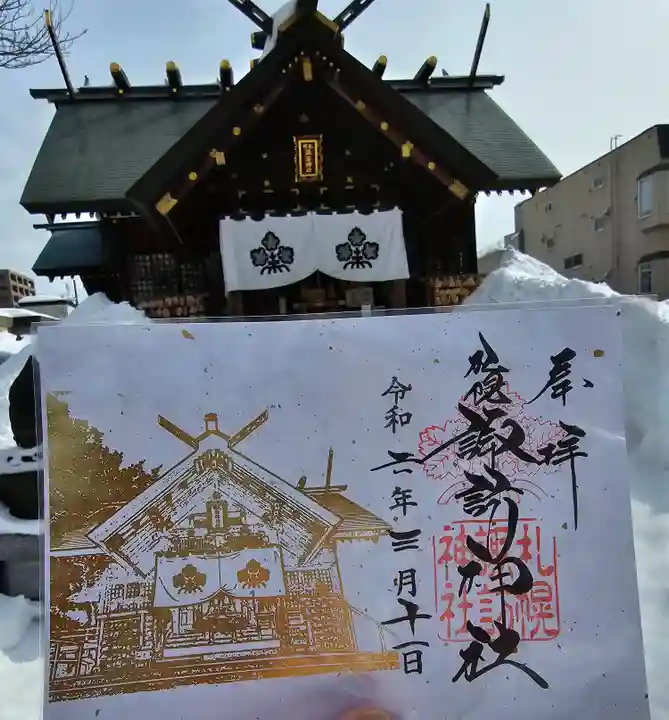 奉拝
札幌諏訪神社
令和六年三月十一日
札幌
諏訪
神社